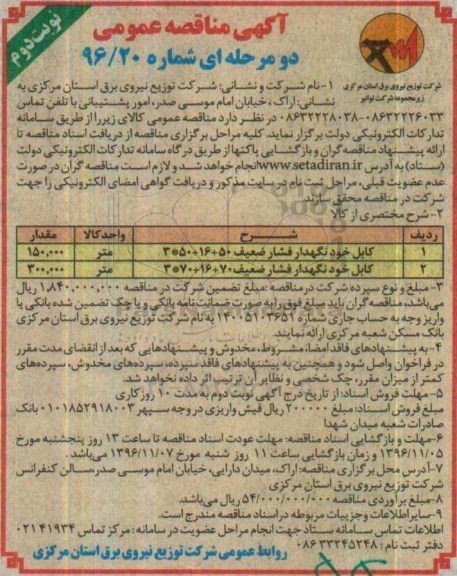 نوبت دوم
آگهی مناقصه عمومی
دو مرحله ای شماره ۹۶/۲۰
شرکت توزیع نیروی برق استان مرکزی
زیرمجموعه شرکت توانیر
۱-نام شرکت و نشانی: شرکت توزیع نیروی برق استان مرکزی به
نشانی: اراک، خیابان امام موسی صدر، امور پشتیبانی با تلفن تماس
۰۸۶۳۲۲۲۶۰۳۳-۰۸۶۳۲۲۲۸۰۳۸ در نظر دارد مناقصه عمومی کالای زیر را از طریق سامانه
تدارکات الکترونیکی دولت برگزار نماید. کلیه مراحل برگزاری مناقصه از دریافت اسناد مناقصه تا
ارائه پیشنهاد مناقصه گران و بازگشایی پاکتها از طریق درگاه سامانه تدارکات الکترونیکی دولت
(ستاد) به آدرس www.setadiran.ir انجام خواهد شد و لازم است مناقصه گران در صورت
عدم عضویت قبلی، مراحل ثبت نام در سایت مذکور و دریافت گواهی امضای الکترونیکی را جهت
شرکت در مناقصه محقق سازند.
۲-شرح مختصری از کالا
ردیف شرح واحد کالا مقدار
۱ کابل خود نگهدار فشار ضعیف ۵۰+۱۶+۵۰*۳ متر ۱۵۰,۰۰۰
۲ کابل خود نگهدار فشار ضعیف ۷۰+۱۶+۷۰*۳ متر ۳۰۰,۰۰۰
۳-مبلغ و نوع سپرده شرکت در مناقصه: مبلغ تضمین شرکت در مناقصه ۱,۸۴۰,۰۰۰,۰۰۰ ریال
می‌باشد، مناقصه گران باید مبلغ فوق را به صورت ضمانت نامه بانکی و یا چک تضمین شده بانکی یا
واریز وجه به حساب جاری شماره ۱۴۰۰۵۱۰۳۶۵۱ به نام شرکت توزیع نیروی برق استان مرکزی
بانک مسکن شعبه مرکزی ارائه نمایند.
۴-به پیشنهادهای فاقد امضا، مشروط، مخدوش و پیشنهادهایی که بعد از انقضای مدت مقرر
در فراخوان واصل شود و همچنین به پیشنهادهای فاقد سپرده، سپرده‌های مخدوش، سپرده‌های
کمتر از میزان مقرر، چک شخصی و نظایر آن ترتیب اثر داده نخواهد شد.
۵-مهلت فروش اسناد: از تاریخ درج آگهی نوبت دوم به مدت ۱۰ روز کاری
مبلغ فروش اسناد: مبلغ ۲۰۰۰۰۰ ریال فیش واریزی در وجه سپهر ۰۱۰۱۸۵۲۹۱۸۰۰۳ بانک
صادرات شعبه میدان شهدا
۶-مهلت و بازگشایی اسناد مناقصه: مهلت عودت اسناد مناقصه تا ساعت ۱۳ روز پنجشنبه مورخ
۱۳۹۶/۱۱/۰۵ و زمان بازگشایی ساعت ۱۱ روز شنبه مورخ ۱۳۹۶/۱۱/۰۷ می‌باشد.
۷-آدرس محل برگزاری مناقصه: اراک، میدان دارایی، خیابان امام موسی صدر، سالن کنفرانس
شرکت توزیع نیروی برق استان مرکزی
۸-مبلغ برآوردی مناقصه ۵۴/۰۰۰/۰۰۰/۰۰۰ ریال می‌باشد.
۹-سایر اطلاعات و جزییات مربوطه در اسناد مناقصه مندرج است.
اطلاعات تماس سامانه ستاد جهت انجام مراحل عضویت در سامانه: مرکز تماس ۰۲۱۴۱۹۳۴
دفتر ثبت نام: ۰۸۶۳۳۲۴۵۲۴۸
روابط عمومی شرکت توزیع نیروی برق استان مرکزی